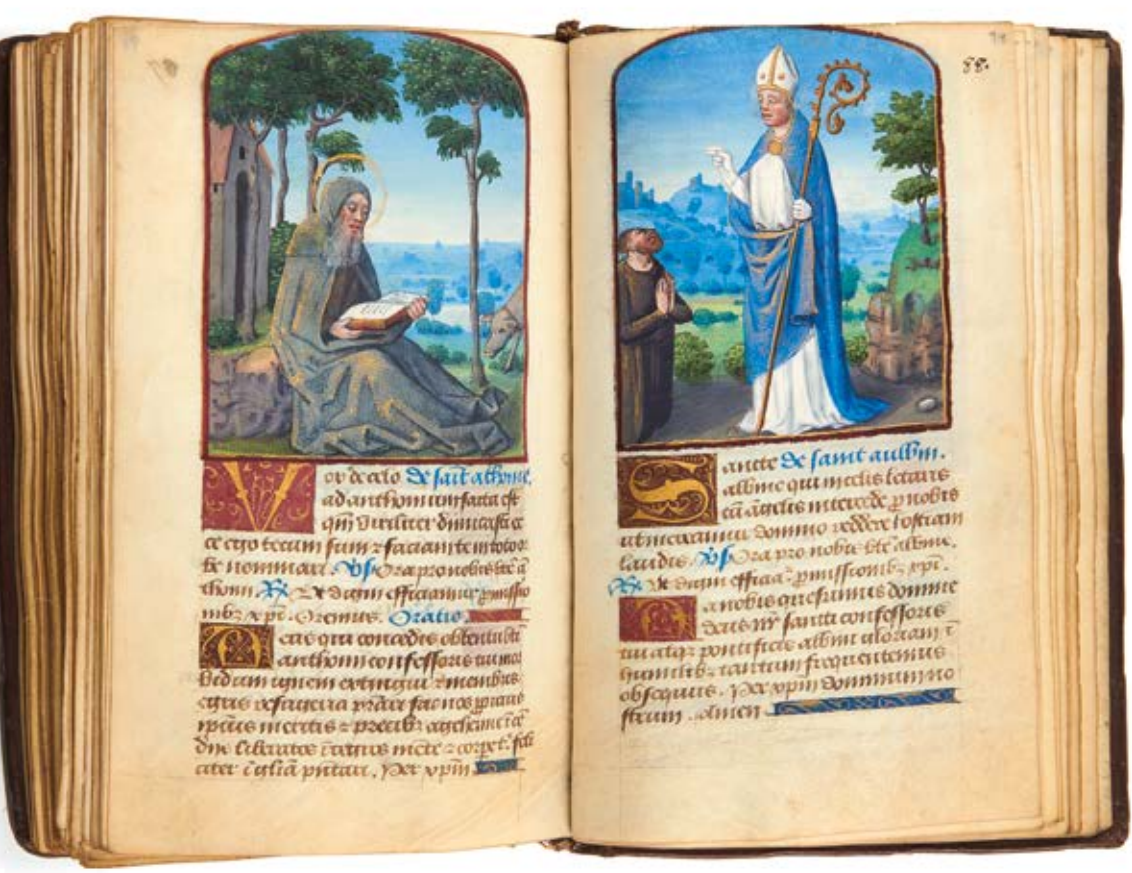 Vox de celo de sait athoine.
ad anthonium facta est
qm̄ viriliter dimicasti ec
ce ego tecum sum ⁊ faciam te in toto or
be nominari. V̄s Ora pro nobis bt̄e a
thoni R̄ Vt digni efficiamur p̄missio
nibꝫ xp̄i. Oremus. Oratio.
Deus qui concedis obtentu bt̄i
anthonii confessoris tui mor
bidum ignem extingui ⁊ membris
egris refrigeria fac nos
ip̄ius meritis ⁊ precibꝫ a gehenne
dio liberatos ītegros mēte ⁊ feli
citer ī gl̄ia pn̄tari. Per xp̄m
88.
Sancte de saint aulbin.
albine qui in celis letaris
cū angelis intercede p̄ nobis
ut mereamur domino reddere hostiam
laudis. V̄s Ora pro nobis bt̄e albine.
R̄ Vt digni efficiaꝛ p̄missionibꝫ xp̄i.
Da nobis quesumus domine
deus nr̄ sancti confessoris
tui atqꝫ pontificis albini gloriam ī
humilibꝫ tantum frequentemus
obsequiis. Per xp̄m dominum no
strum. Amen